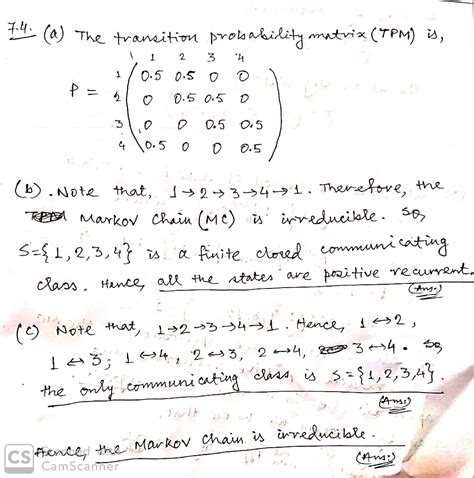 7.4. (a) The transition probability matrix (TPM) is,
1 2 3 4
P = 1 0.5 0.5 0 0
2 0 0.5 0.5 0
3 0 0 0.5 0.5
4 0.5 0 0 0.5
(b). Note that, 1→2→3→4→1. Therefore, the
Markov Chain (MC) is irreducible. So,
S={1,2,3,4} is a finite closed communicating
class. Hence, all the states are positive recurrent.
(Ans.)
(c) Note that, 1→2→3→4→1. Hence, 1↔2,
1↔3, 1↔4, 2↔3, 2↔4, 3↔4. So,
the only communicating class is S={1,2,3,4}.
(Ans.)
Hence, the Markov Chain is irreducible.
(Ans.)
CS CamScanner